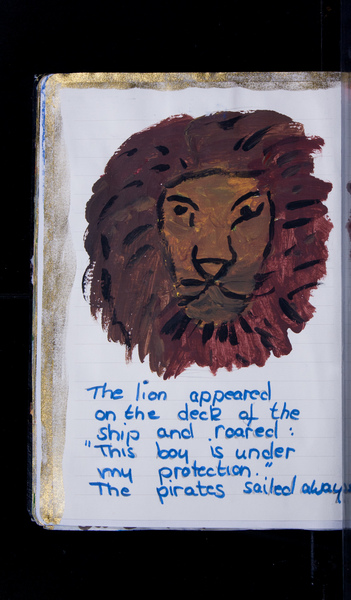 The lion appeared
on the deck of the
ship and roared :
"This boy is under
my protection."
The pirates sailed away